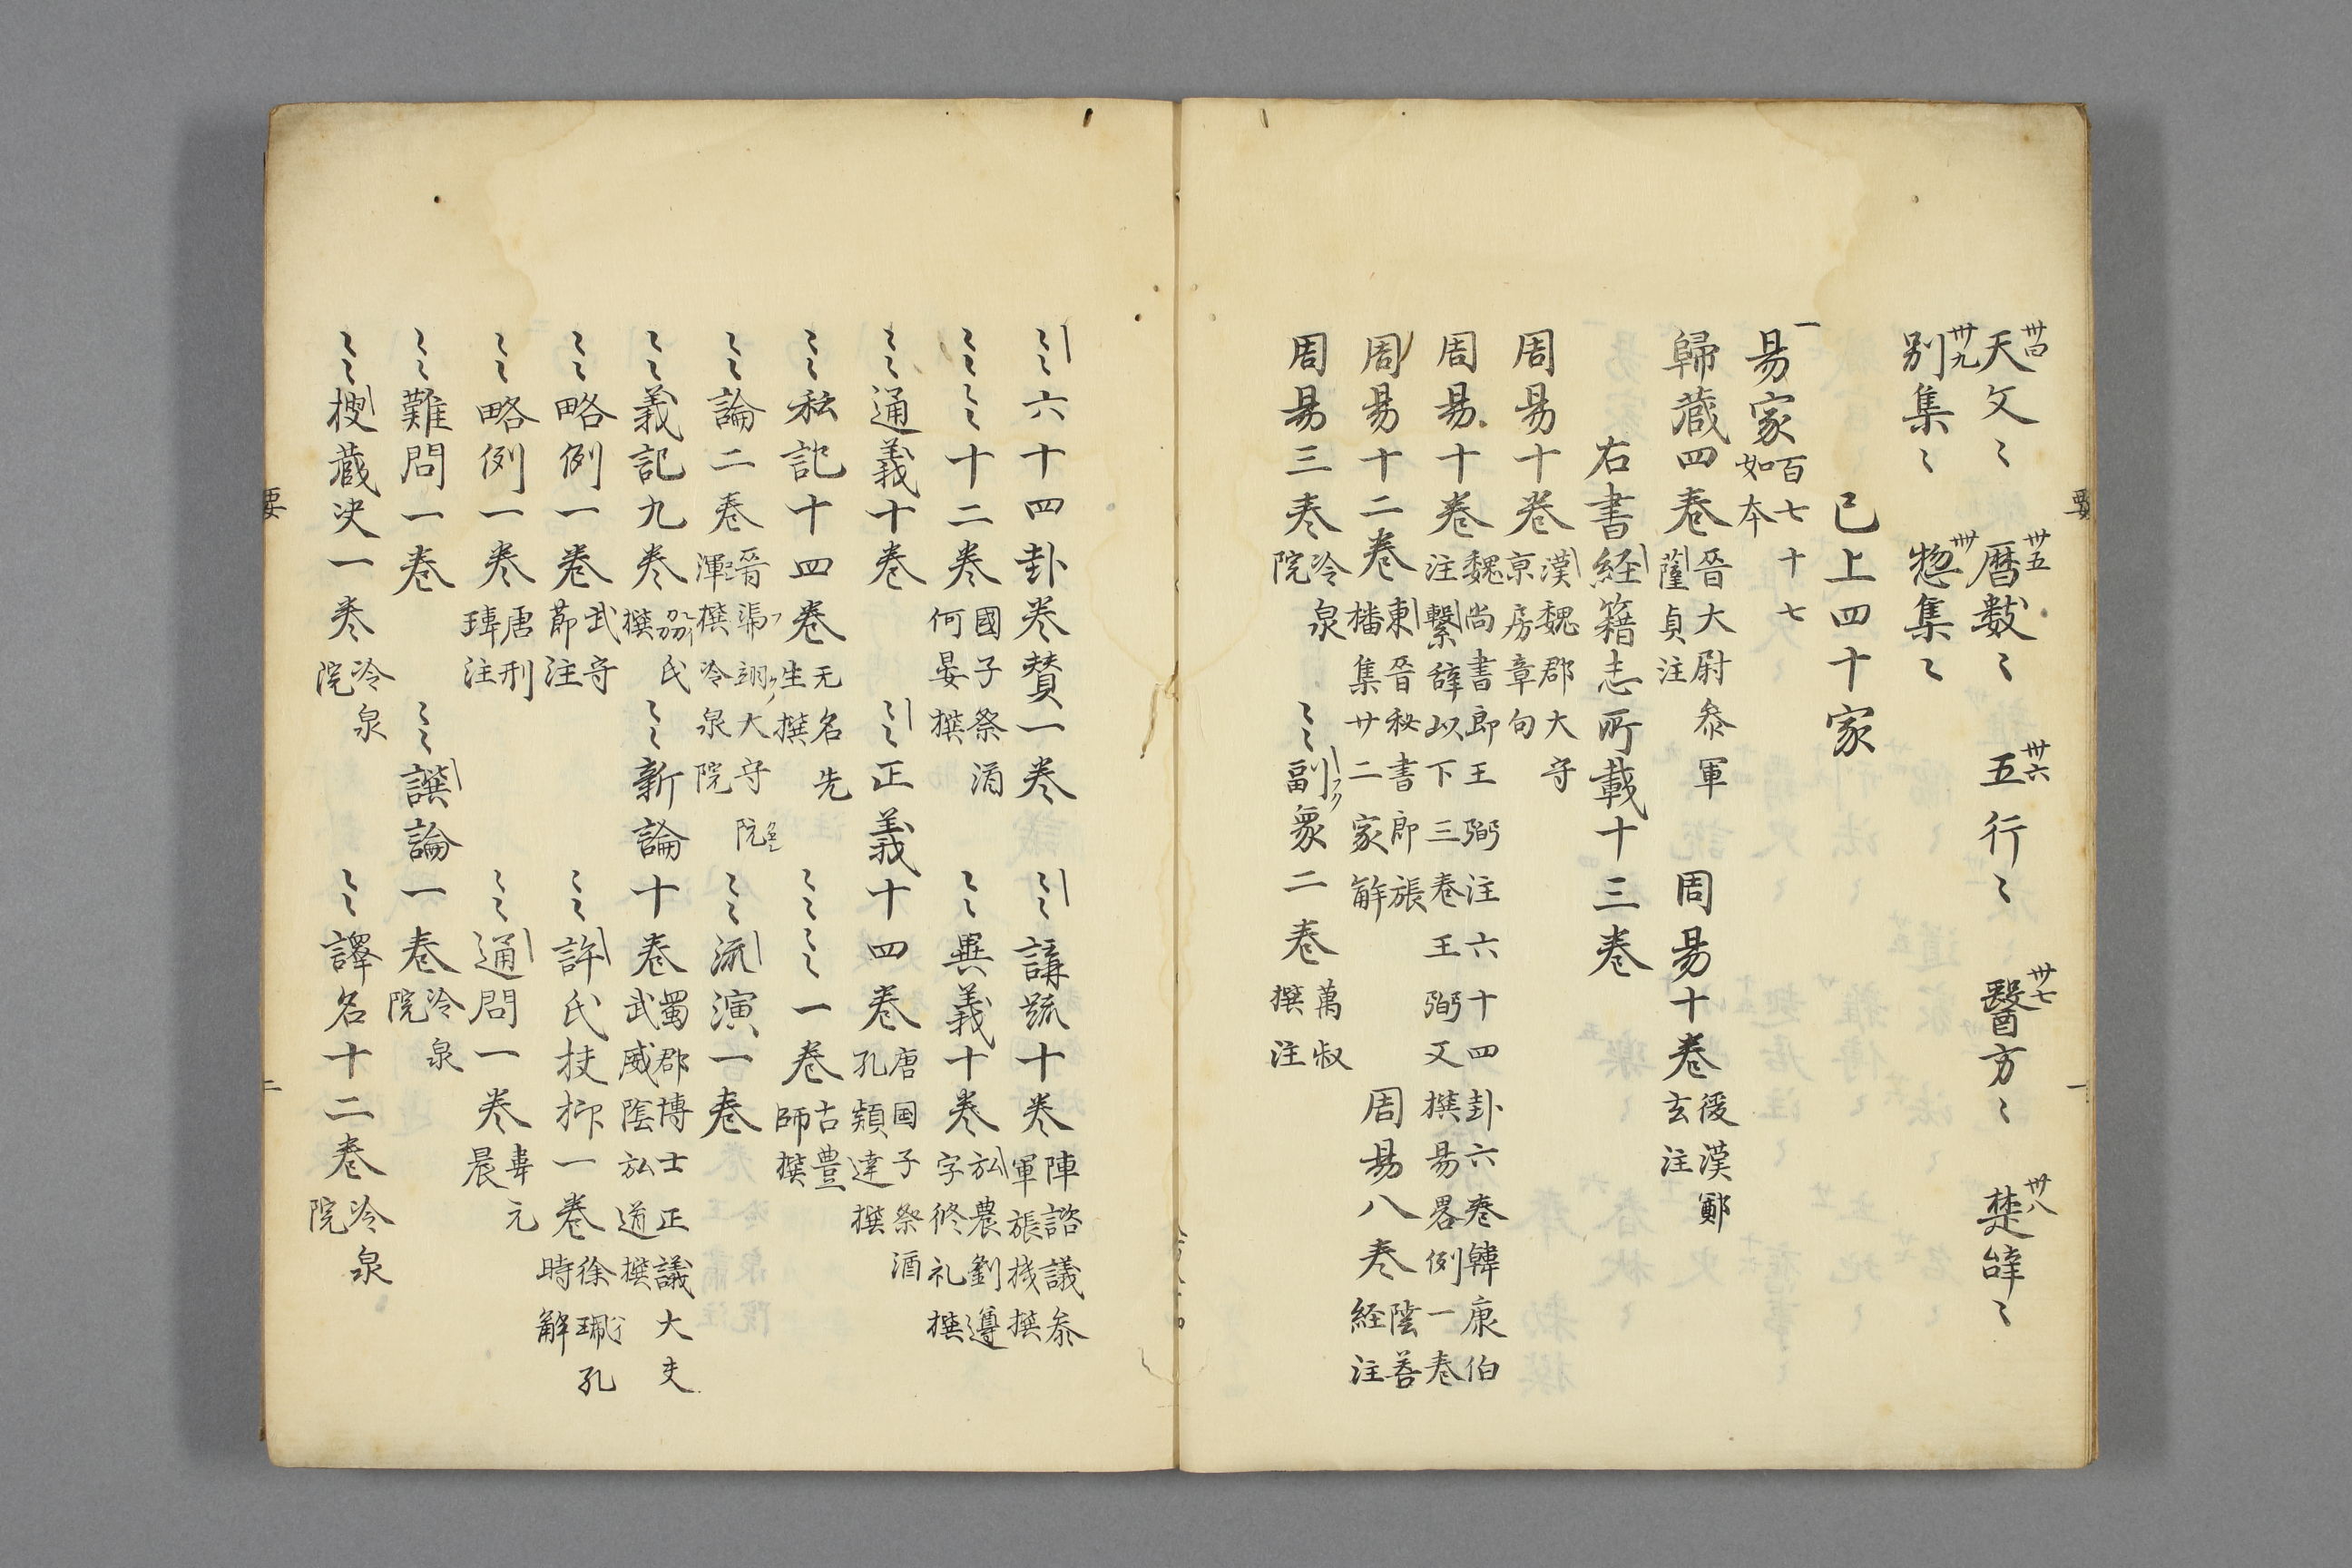 卅四天文〻 卅五曆數〻 卅六五行〻 卅七醫方〻 卅八楚辞〻
卅九別集〻 卌惣集〻
已上四十家
一易家百七十七如本
歸蔵四巻晉大尉参軍薩貞注 周易十巻後漢鄭玄注
右書経籍志所載十三巻
周易十巻漢魏郡大守京房章句
周易十巻魏尚書郎王弼注六十四卦六巻韓康伯注繋辞以下三巻王弼又撰易畧例一巻
周易十二巻東晉秘書郎張璠集廿二家解 周易八巻陰善経注
周易三巻冷泉院 〻〻副象二巻萬叔撰注
〻〻六十四卦巻賛一巻 〻〻講䟽十巻陣諮議参軍張撰
〻〻〻〻十二巻國子祭酒何晏撰 〻〻異義十巻弘農劉遵字修礼撰
〻〻通義十巻 〻〻正義十四巻唐国子祭酒孔穎達撰
〻〻私記十四巻无名先生撰 〻〻〻〻一巻古豊師撰
〻〻論二巻晉馮翊大守渾撰冷泉院 〻〻流演一巻
〻〻義記九巻氏撰 〻〻新論十巻蜀郡博士正議大夫武威陰弘道撰
〻〻略例一巻武守節注 〻〻許氏扶抑一巻徐珮孔時解
〻〻略例一巻唐刑璹注 〻〻通問一巻元晨
〻〻難問一巻 〻〻譔論一巻冷泉院
〻〻捜蔵決一巻冷泉院 〻〻譯名十二巻冷泉院